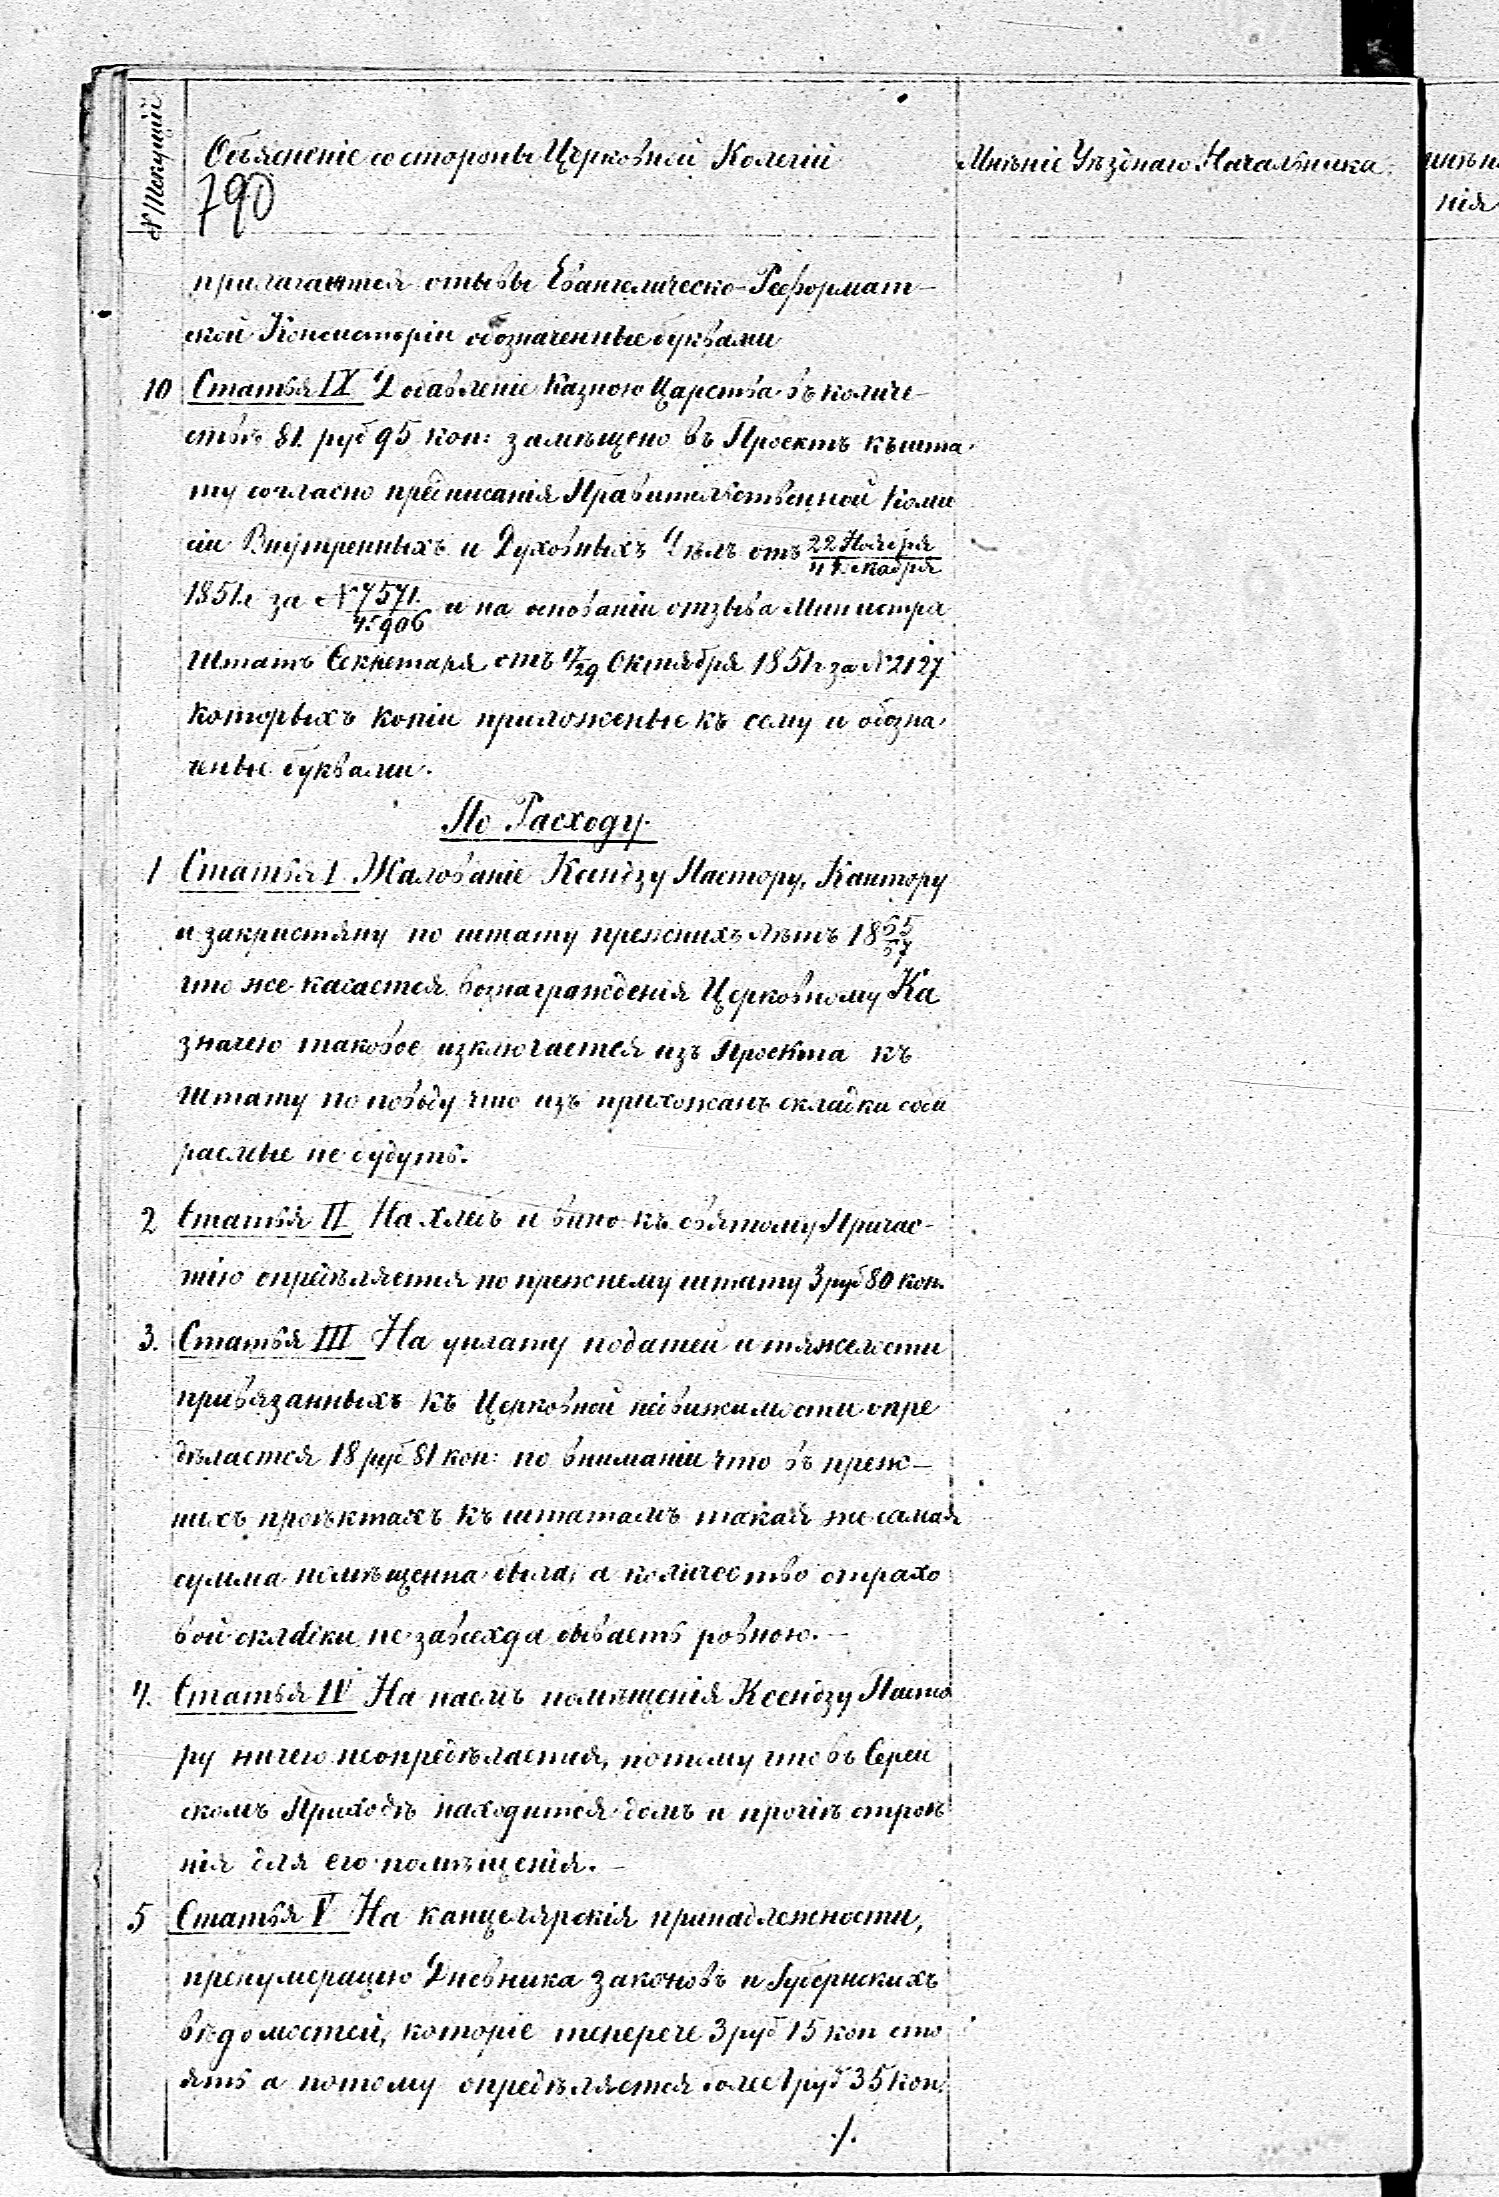 № Текущій
Объясненіе со стороны Церковной Колегіи
Мнѣніе Уѣзднаго Начальника.
нія
790
прилагаются отывы Евангелическо-Реформат-
ской Консисторіи обозначенные буквами
10 Статья IX Добавленіе Казною Царства въ количе-
ствѣ 81 руб 95 коп: замѣщено въ Проектъ къ шта-
ту согласно предписанія Правительственной Коми
сіи Внутренныхъ и Духовныхъ Дѣлъ отъ 22 Ноября / 4 Декабря
1851 г за № 7571 / 45906 и на основаніи отзыва Министра
Штатъ Секретаря отъ 17/29 Октября 1851 г за № 2127
которыхъ копіи приложеные къ сему и обозна-
чные буквами.
По Расходу.
1 Статья I Жалованіе Ксендзу Пастору, Кантору
и закристяну по штату прежнихъ лѣтъ 18 65/67
что же касается вознагражденія Церковному Ка
значею таковое изключается изъ Проекта къ
Штату по поводу что изъ прихожанъ складки соби
раемые не будутъ.
2 Статья II На хлѣбъ и вино къ святому Причас-
тію опредѣляется по прежнему штату 3 руб 80 коп.
3. Статья III На уплату податей и тяжелости
привязанныхъ къ Церковной недвижимости опре
дѣлается 18 руб 81 коп: по вниманіи что въ преж-
нихъ проѣктахъ къ штатамъ такая же самая
сумма помѣщенна была, а количество страхо
вой складки не завсихда бываетъ ровною.-
4. Статья IV На наемъ помѣщенія Ксендзу Пасто
ру ничего неопредѣлается, потому что въ Серей
скомъ Приходѣ находится домъ и прочіѣ строѣ
нія для его помѣщенія.-
5 Статья V На канцелярскія принадлежности,
пренумерацію Дневника законовъ и Губернскихъ
вѣдомостей, которіе теперече 3 руб 15 коп сто
ятъ а потому опредѣляется болѣе 1 руб 35 коп.
./.